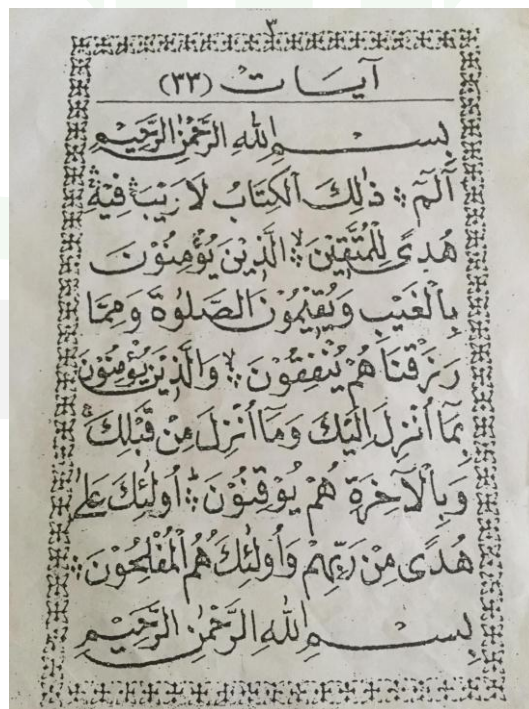 ٣
آيات (٣٣)
بِسْمِ اللهِ الرَّحْمٰنِ الرَّحِيْمِ
آلٓمّٓ ۞ ذٰلِكَ الْكِتَابُ لَا رَيْبَ ۛ فِيْهِ ۛ
هُدًى لِّلْمُتَّقِيْنَ ۙ الَّذِيْنَ يُؤْمِنُوْنَ
بِالْغَيْبِ وَيُقِيْمُوْنَ الصَّلٰوةَ وَمِمَّا
رَزَقْنَاهُمْ يُنْفِقُوْنَ ۙ وَالَّذِيْنَ يُؤْمِنُوْنَ
بِمَا اُنْزِلَ اِلَيْكَ وَمَا اُنْزِلَ مِنْ قَبْلِكَ
وَبِالْآخِرَةِ هُمْ يُوْقِنُوْنَ ۞ اُولٰئِكَ عَلٰى
هُدًى مِنْ رَبِّهِمْ وَاُولٰئِكَ هُمُ الْمُفْلِحُوْنَ ۞
بِسْمِ اللهِ الرَّحْمٰنِ الرَّحِيْمِ